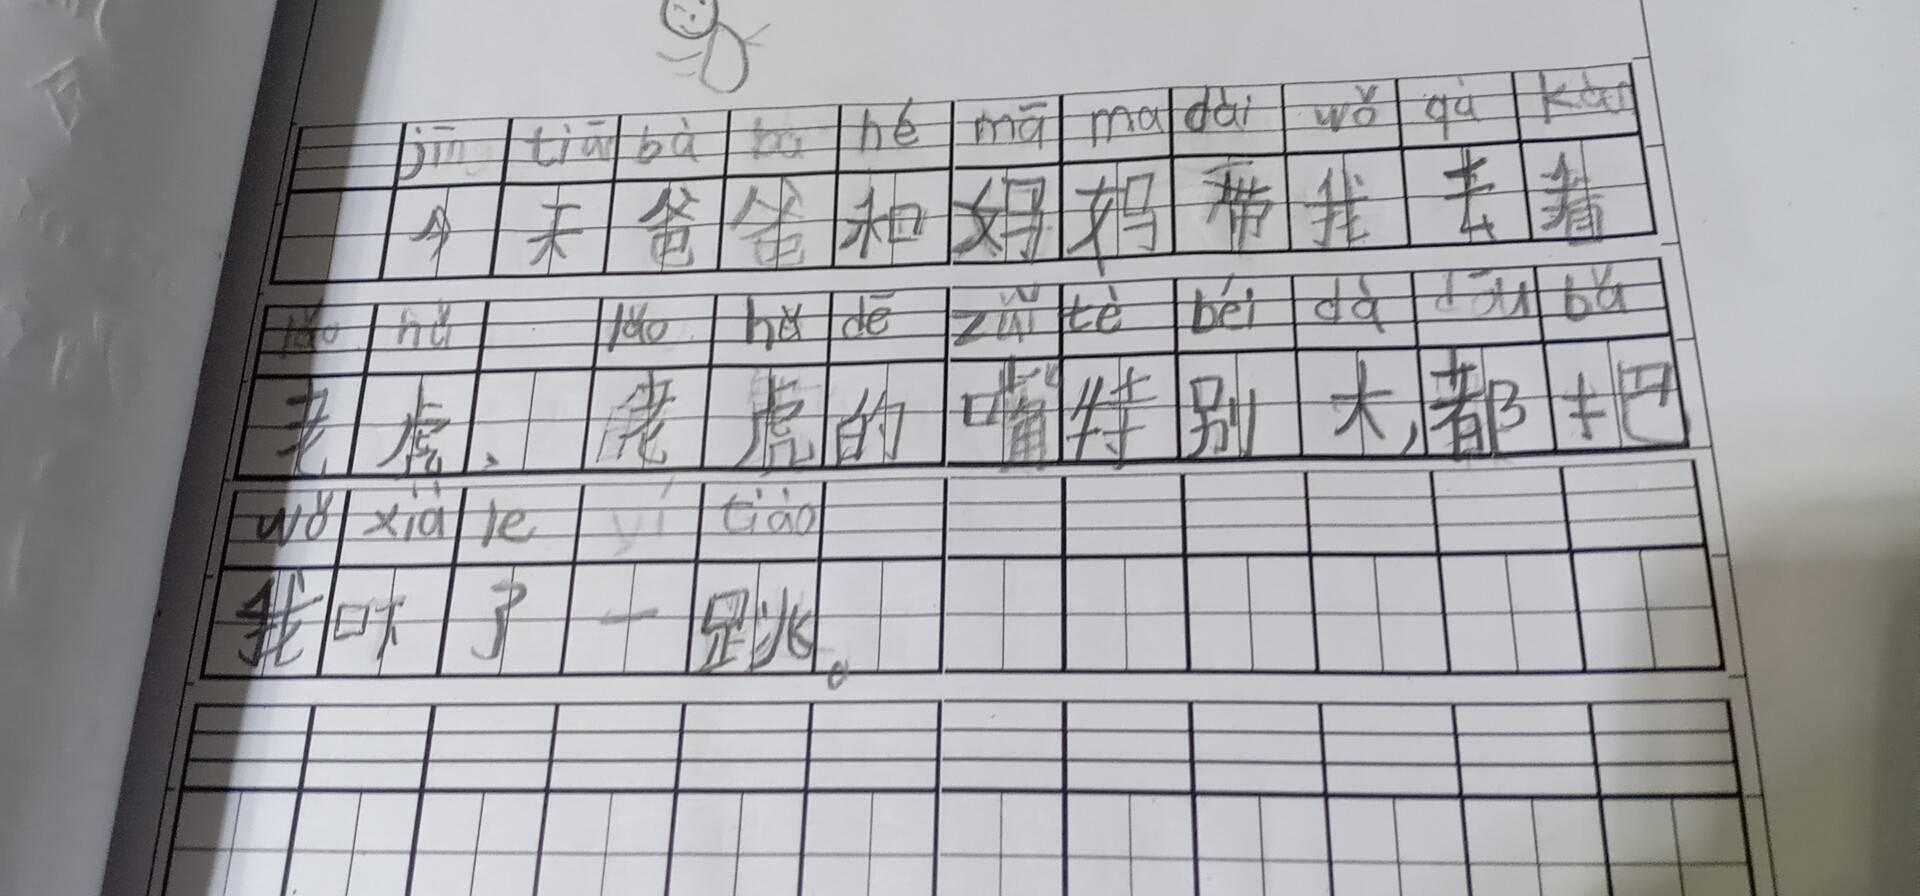 jīn tiān bà ba hé mā ma dài wǒ qù kàn
今天爸爸和妈妈带我去看
lǎo hǔ lǎo hǔ dē zuǐ tè béi dà dōu bǎ
老虎、老虎的嘴特别大,都把
wǒ xià le yí tiào
我吓了一跳。